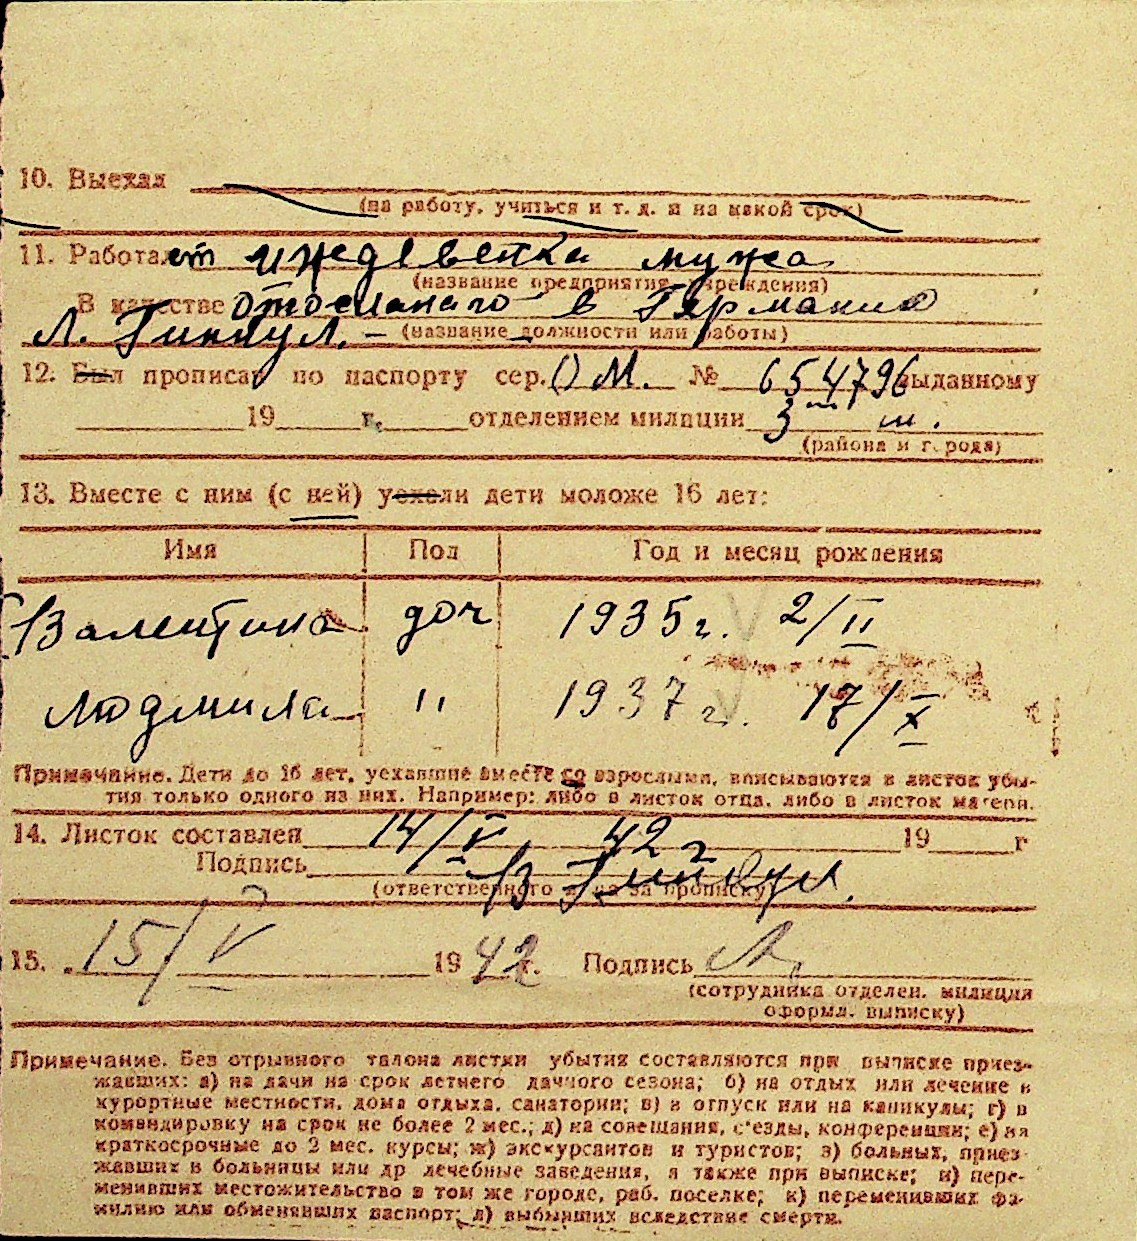 10. Выехал
(на работу, учиться и т. д. и на какой срок)
11. Работает иждевенка мужа
(название предприятия, учреждения)
В качестве отосланаго в Германию
Л. – (название должности или работы)
12. Был прописан по паспорту сер. М. № 654796 выданному
19 г. отделением милиции 3
(района и города)
13. Вместе с ним (с ней) уехали дети моложе 16 лет:
Имя Пол Год и месяц рождения
Валентина доч 1935 г. 2/II
Людмила " 1937 г. 17/X
Примечание. Дети до 16 лет, уехавшие вместе со взрослыми, вписываются в листок убы-
тия только одного из них. Например: либо в листок отца, либо в листок матери.
14. Листок составлен 14/V 42 г 19 г
Подпись В
(ответственного лица за прописку)
15. 15/V 1942 г. Подпись
(сотрудника отделен. милиции
оформл. выписку)
Примечание. Без отрывного талона листки убытия составляются при выписке приез-
жавших: а) на дачи на срок летнего дачного сезона; б) на отдых или лечение в
курортные местности, дома отдыха, санатории; в) в отпуск или на каникулы; г) в
командировку на срок не более 2 мес.; д) на совещания, с'езды, конференции; е) на
краткосрочные до 2 мес. курсы; ж) экскурсантов и туристов; з) больных, приез-
жавших в больницы или др лечебные заведения, а также при выписке; и) пере-
менивших местожительство в том же городе, раб. поселке; к) переменивших фа-
милию или обменявших паспорт; л) выбывших вследствие смерти.